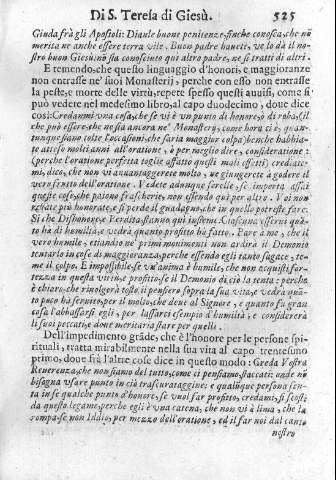 Di S. Teresa di Giesù. 525
Giuda frà gli Apostoli: Diaule buone penitenze, finche conosca, che nō
merita ne anche essere terra vile. Buon padre hauete, ve lo dà il no-
stro buon Giesù: nō sia conosciuto quì altro padre, ne si tratti di altri.
E temendo, che questo linguaggio d'honori, e maggioranze
non entrasse ne' suoi Monasterij, perche con esso non entrasse
la peste, e morte delle virtù, repete spesso questi auuisi, come si
può vedere nel medesimo libro, al capo duodecimo, doue dice
così: Credanmi vna cosa, che se vi è vn punto di honore, ò di roba, (il
che può essere, che ne sia ancora ne' Monasterij, come hora ci è, quan-
tunque siano tolte l'occasioni, che saria maggior colpa) benche habbia-
te attesi molti anni all'oratione, ò per meglio dire, consideratione:
(perche l'oratione perfetta toglie affatto questi mali effetti) crediate-
mi, dico, che non vi auuantaggerete molto, ne giungerete à godere il
vero frutto dell'oratione. Vedete adunque sorelle, se importa assai
queste cose, che paiono frascherie, non essendo quì per altro. Voi non
restate più honorate, e si perde il guadagno, che in quello potreste fare.
Si che Dishonore, e Perdita, stanno quì insieme. Ciascuna osserui quā-
to hà di humiltà, e vedrà quanto profitto hà fatto. Pare à me, che il
vero humile, etiandio ne' primi mouimenti non ardirà il Demonio
tentarlo in cose di maggioranza, perche essendo egli tanto sagace, te-
me il colpo. È impossibile, se vn'anima è humile, che non acquisti for-
tezza in questa virtù, e profitto, se il Demonio di ciò la tenta: perche
è chiaro, che riuolgerà tosto il pensiero sopra la sua vita, e vedrà quā-
to poco hà seruito, per il molto, che deue al Signore, e quanto fù gran
cosa l'abbassarsi egli, per lassarci esempio d'humiltà, e considererà
li suoi peccati, e doue meritaria stare per quelli.
Dell'impedimento grāde, che è l'honore per le persone spi-
rituali, tratta mirabilmente nella sua vita al capo trentesimo
primo, doue frà l'altre cose dice in questo modo: Creda Vostra
Reuerenza, che non siamo del tutto, come ci pensiamo, staccati: onde nō
bisogna vsare punto in ciò trascurataggine: e qualūque persona sen-
ta in se qualche punto d'honore, se vuol far profitto, credami, si scosti
da questo legame, perche egli è vna catena, che non vi è lima, che la
rompa se non Iddio, per mezzo dell'oratione, ed il far noi dal canto
nostro